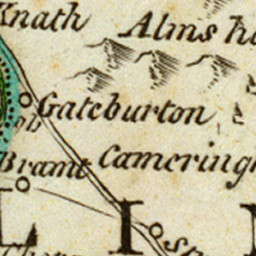 Knath
Alms
Gateburton
gh
Bramt
Camering
L I